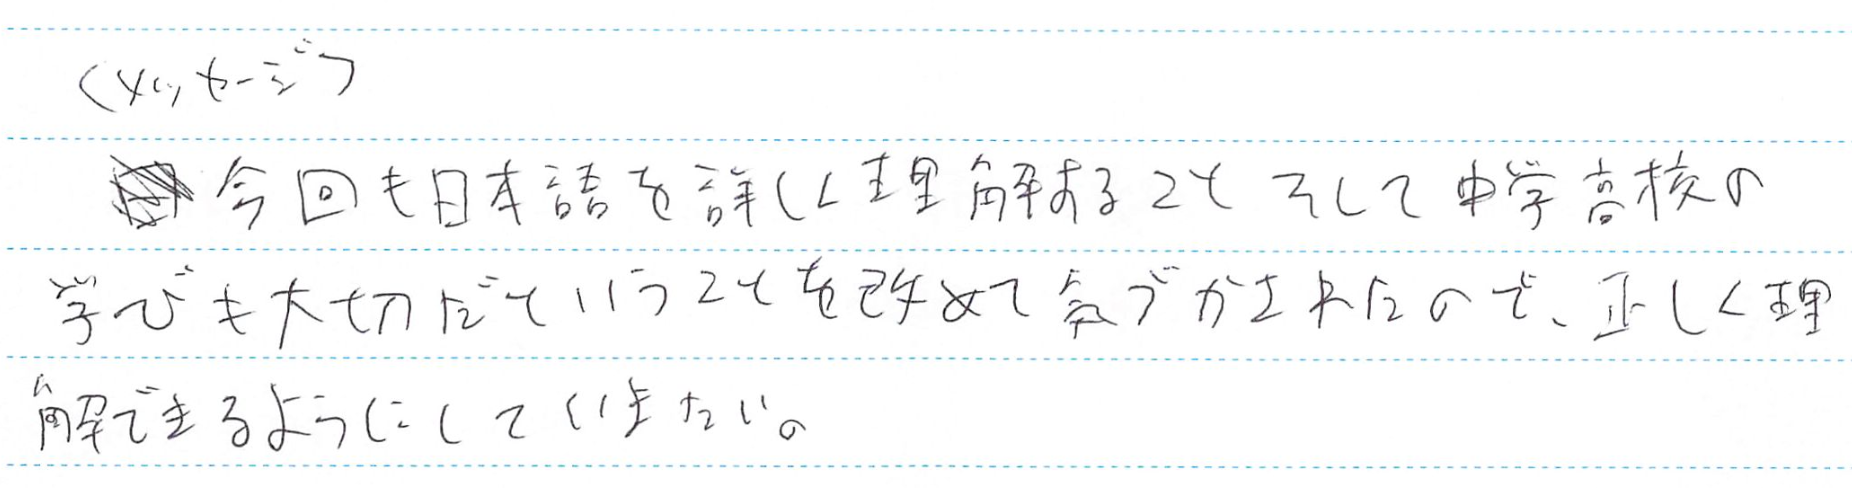 〈メッセージ〉
今回も日本語を詳しく理解すること そして中学高校の
学びも大切だということを改めて気づかされたので、正しく理
解できるようにしていきたい。